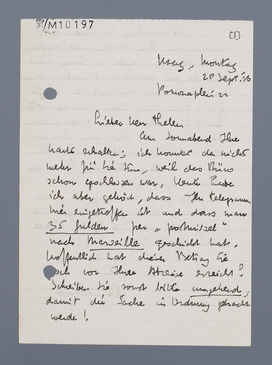 M10197
[1]
Haag, Montag
28 Sept. 36
Pomonaplein 22
Lieber Herr Thelen
Am Sonnabend Ihre
Karte erhalten; ich konnte da nichts
mehr für Sie tun, weil das Büro
schon geschlossen war. Heute habe
ich aber gehört, dass Ihr Telegramm
hier eingetroffen ist und dass man
35 Gulden per „postwissel"
nach Marseille geschickt hat.
Hoffentlich hat dieser Betrag Sie
noch vor Ihrer Abreise erreicht?
Schreiben Sie sonst bitte umgehend,
damit die Sache in Ordnung gebracht
werde!